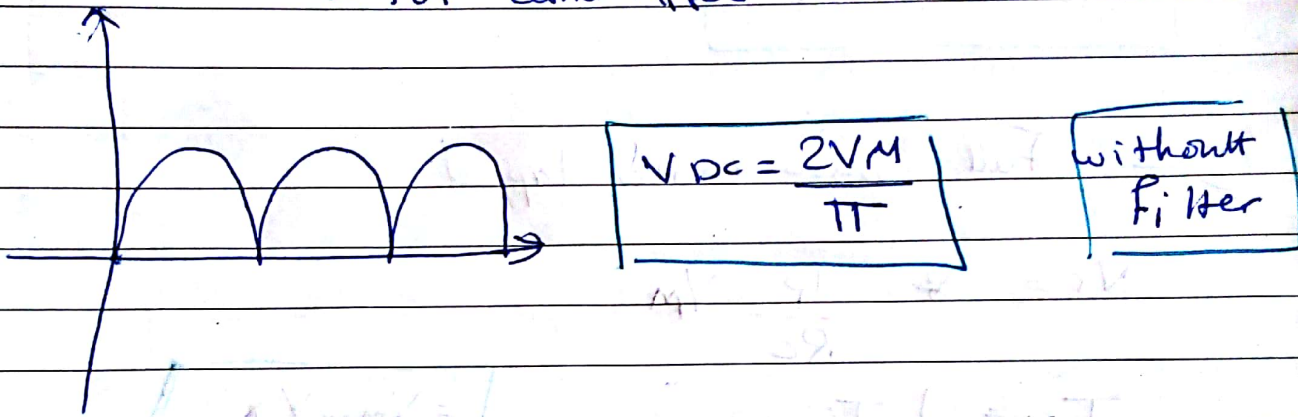 VDC = 2VM / π
without
Filter